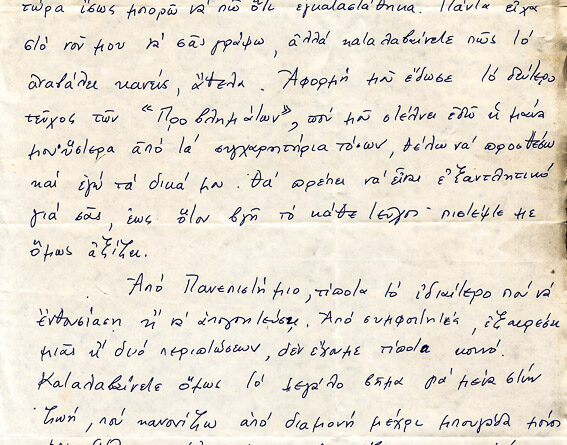 τώρα ἴσως μπορῶ νά πῶ ὅτι ἐγκαταστάθηκα. Πάντα εἶχα
στό νοῦ μου νά σᾶς γράψω, ἀλλά καταλαβαίνετε πῶς τό
ἀναβάλει κανείς, ἄθελα. Ἀφορμή μοῦ ἔδωσε τό δεύτερο
τεῦχος τῶν "Προβλημάτων", πού μοῦ στέλνει ἐδῶ ἡ μάνα
μου. Ὕστερα ἀπό τά συγχαρητήρια τόσων, θέλω νά προσθέσω
καί ἐγώ τά δικά μου. Θά πρέπει νά εἶναι ἐξαντλητικό
γιά σᾶς, ἕως ὅτου βγῆ τό κάθε τεῦχος πιστέψτε με
ὅμως ἀξίζει.
Ἀπό Πανεπιστήμιο, τίποτα τό ἰδιαίτερο πού νά
ἐνθουσιάση ἤ νά ἀπογοητεύση. Ἀπό συμφοιτητές, ἐξαιρέσει
μιᾶς ἤ δυό περιπτώσεων, δέν ἔχομε τίποτα κοινό.
Καταλαβαίνετε ὅμως τό μεγάλο βῆμα γιά μένα στήν
ζωή, πού κανονίζω ἀπό διαμονή μέχρι μπουγάδα μόνο